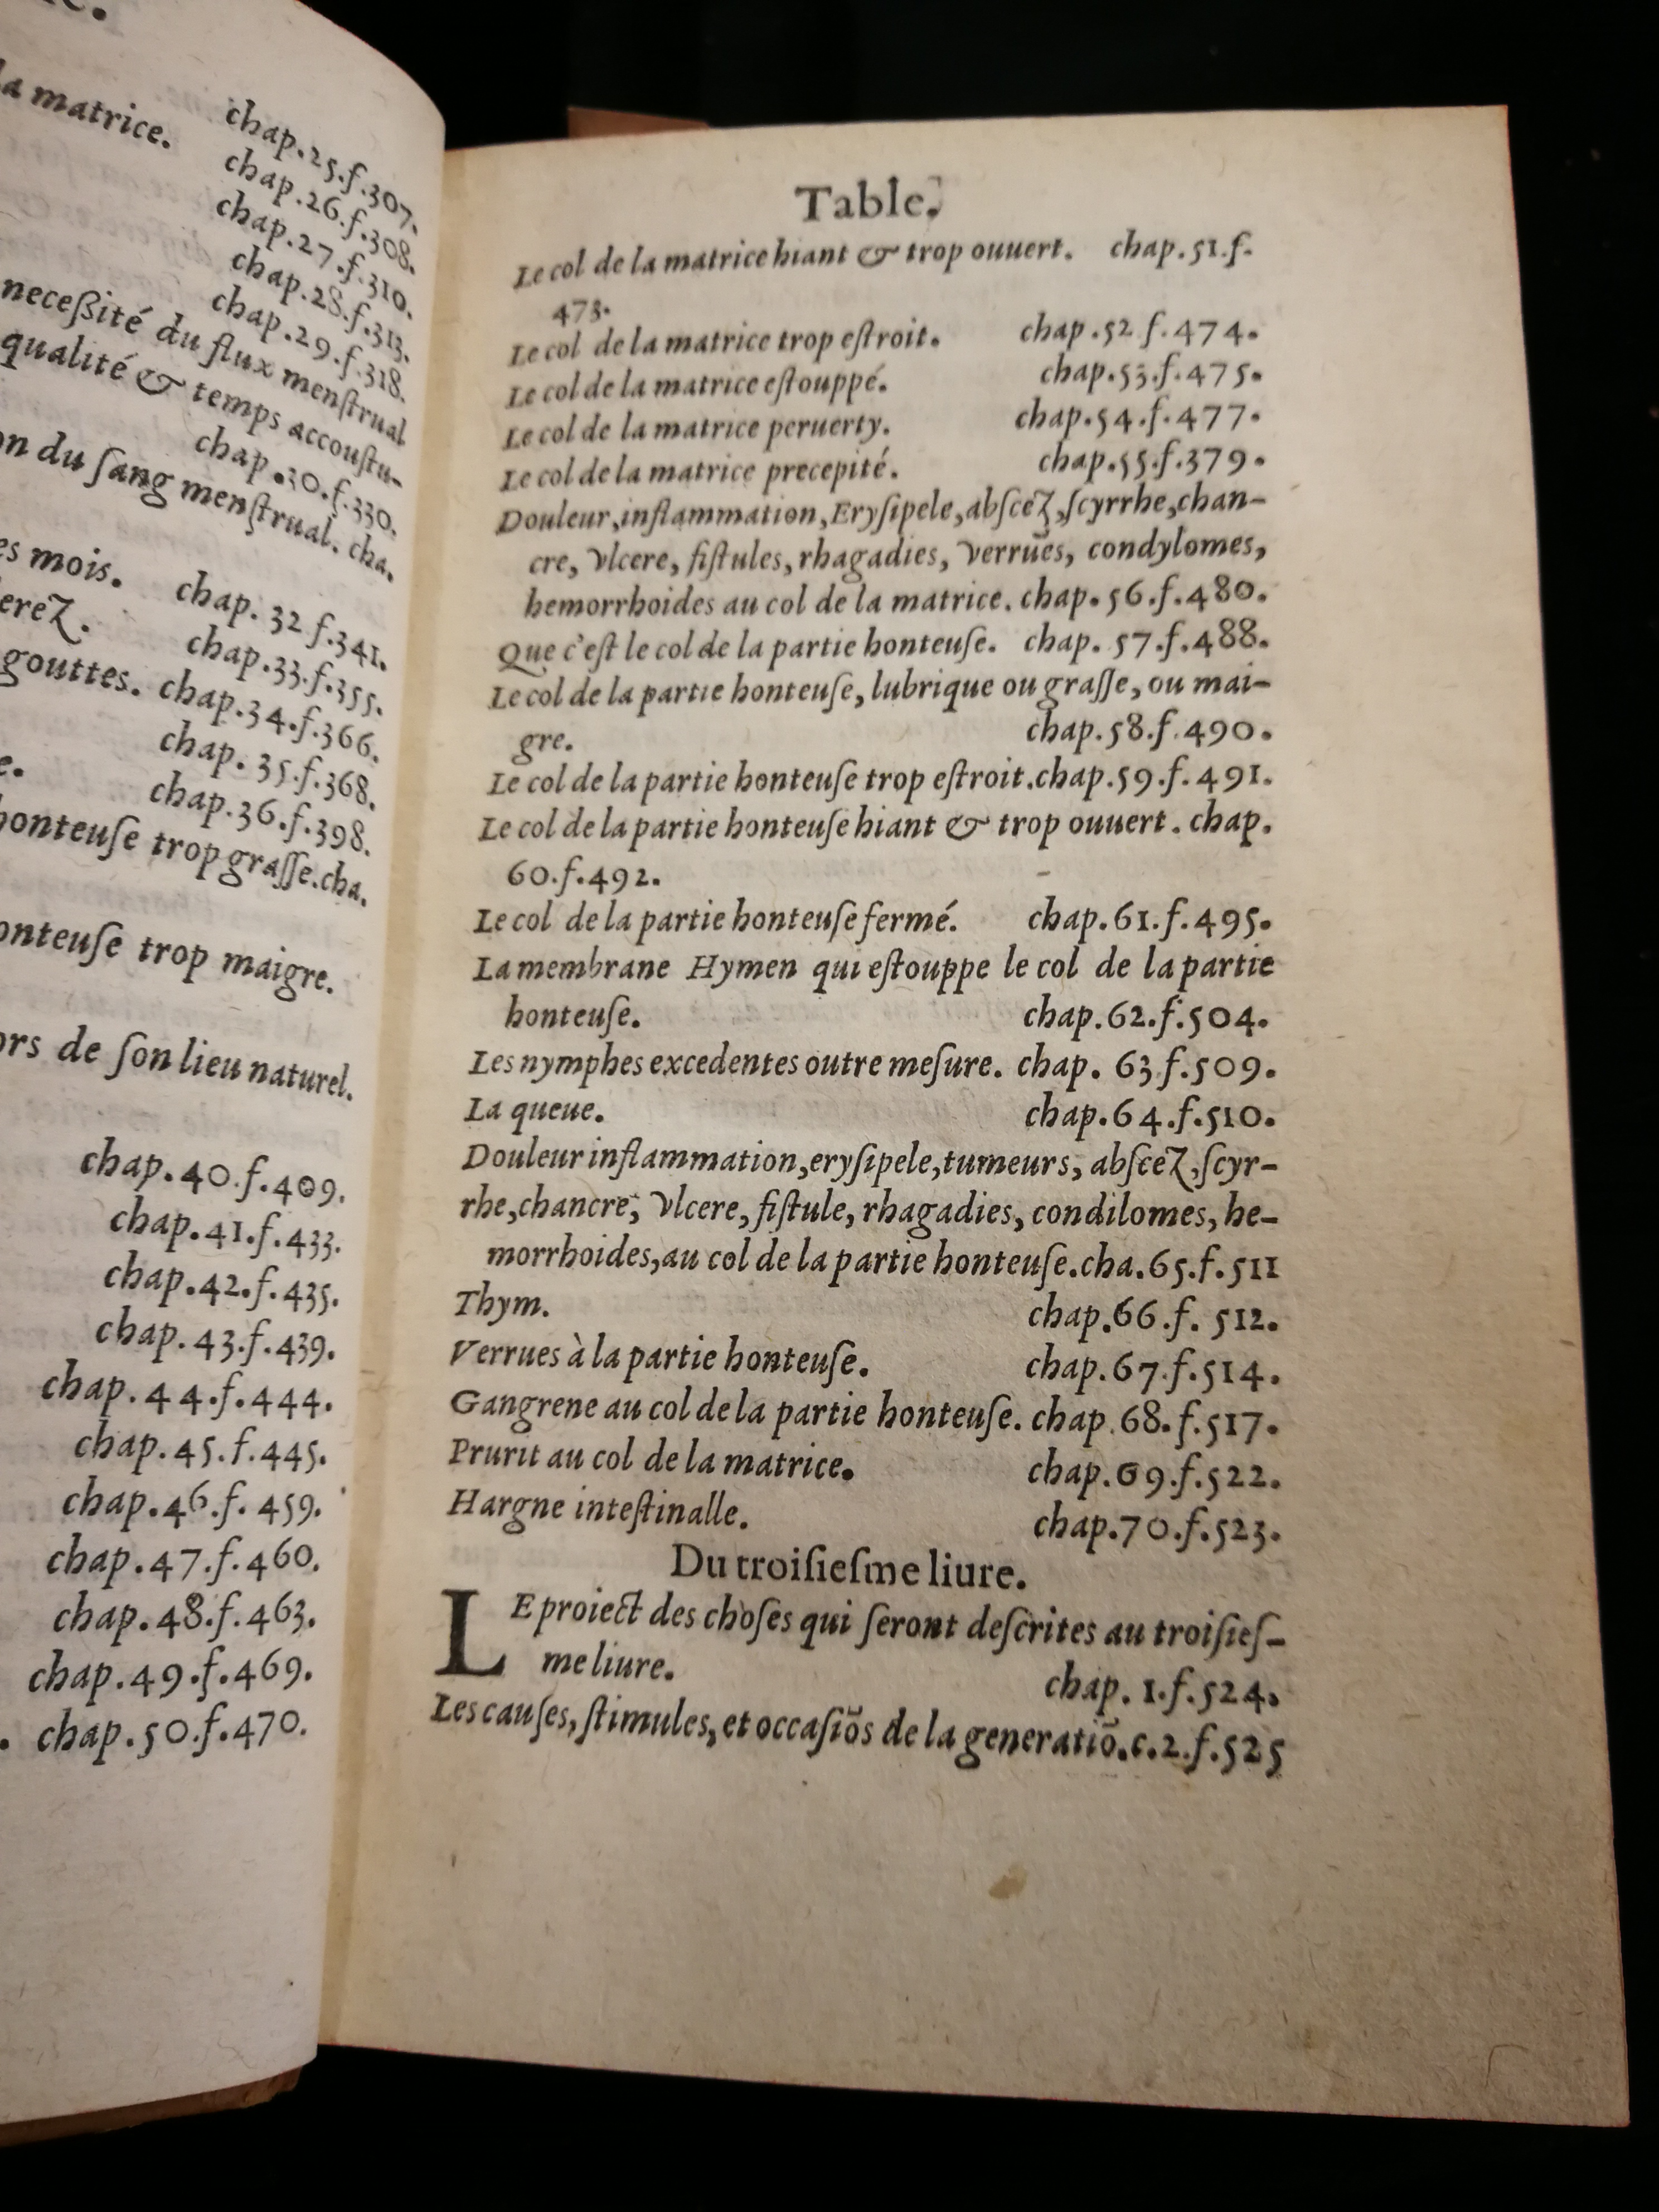 la matrice.
chap.25.f.307.
chap.26.f.308.
chap.27.f.310.
chap.28.f.313.
chap.29.f.318.
neceßité du flux menſtrual
qualité & temps accouſtu-
chap.30.f.330.
on du ſang menſtrual. cha.
es mois. chap. 32 f.341.
erez. chap.33.f.355.
gouttes. chap.34.f.366.
chap. 35.f.368.
e. chap.36.f.398.
honteuſe trop graſſe.cha.
onteuſe trop maigre.
ors de ſon lieu naturel.
chap.40.f.409.
chap.41.f.433.
chap.42.f.435.
chap.43.f.439.
chap.44.f.444.
chap.45.f.445.
chap.46.f. 459.
chap.47.f.460.
chap.48.f.463.
chap.49.f.469.
. chap.50.f.470.
Table.
Le col de la matrice hiant & trop ouuert. chap.51.f.
473.
Le col de la matrice trop eſtroit. chap.52 f.474.
Le col de la matrice eſtouppé. chap.53.f.475.
Le col de la matrice peruerty. chap.54.f.477.
Le col de la matrice precepité. chap.55.f.379.
Douleur,inflammation,Eryſipele,abſcez,ſcyrrhe,chan-
cre, vlcere, fiſtules, rhagadies, verruës, condylomes,
hemorrhoides au col de la matrice. chap. 56.f.480.
Que c'eſt le col de la partie honteuſe. chap. 57.f.488.
Le col de la partie honteuſe, lubrique ou graſſe, ou mai-
gre. chap.58.f.490.
Le col de la partie honteuſe trop eſtroit.chap.59.f.491.
Le col de la partie honteuſe hiant & trop ouuert. chap.
60.f.492.
Le col de la partie honteuſe fermé. chap.61.f.495.
La membrane Hymen qui eſtouppe le col de la partie
honteuſe. chap.62.f.504.
Les nymphes excedentes outre meſure. chap. 63 f.509.
La queue. chap.64.f.510.
Douleur inflammation,eryſipele,tumeurs, abſcez,ſcyr-
rhe,chancre, vlcere, fiſtule, rhagadies, condilomes, he-
morrhoides,au col de la partie honteuſe.cha.65.f.511
Thym. chap.66.f. 512.
Verrues à la partie honteuſe. chap.67.f.514.
Gangrene au col de la partie honteuſe. chap.68.f.517.
Prurit au col de la matrice. chap.69.f.522.
Hargne inteſtinalle. chap.70.f.523.
Du troiſieſme liure.
LE proiect des choſes qui ſeront deſcrites au troiſieſ-
me liure. chap. 1.f.524.
Les cauſes, ſtimules, et occaſiõs de la generatiõ.c.2.f.525